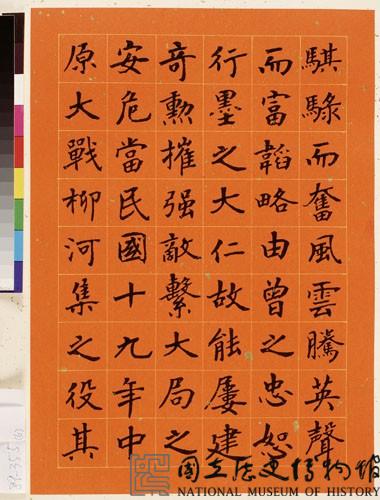 騏騄而奮風雲騰英聲
而富韜略由曾之忠恕
行墨之大仁故能屢建
奇勲摧强敵繫大局之
安危當民國十九年中
原大戰柳河集之役其
國立歷史博物館
NATIONAL MUSEUM OF HISTORY